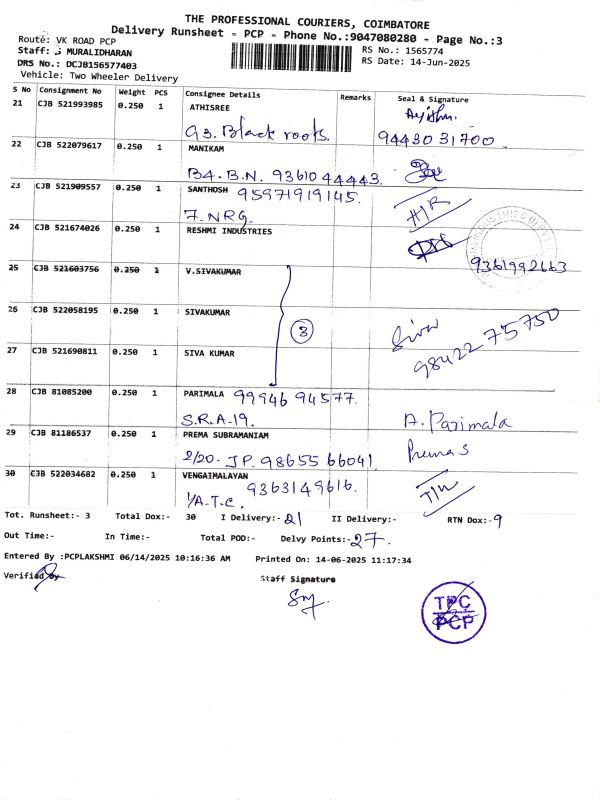 THE PROFESSIONAL COURIERS, COIMBATORE
Delivery Runsheet - PCP - Phone No.:9047080280 - Page No.:3
Route: VK ROAD PCP
RS No.: 1565774
Staff: MURALIDHARAN
RS Date: 14-Jun-2025
DRS No.: DCJB156577403
Vehicle: Two Wheeler Delivery
S No Consignment No Weight PCS Consignee Details Remarks Seal & Signature
21 CJB 521993985 0.250 1 ATHISREE
G3. Black roots. 9443031700.
22 CJB 522079617 0.250 1 MANIKAM
B4. B.N. 9361044443.
23 CJB 521909557 0.250 1 SANTHOSH 95971919145.
7. NRG. H/R
24 CJB 521674026 0.250 1 RESHMI INDUSTRIES
9361992663
25 CJB 521603756 0.250 1 V.SIVAKUMAR
26 CJB 522058195 0.250 1 SIVAKUMAR
3 Siva
98422 75750
27 CJB 521690811 0.250 1 SIVA KUMAR
28 CJB 81085200 0.250 1 PARIMALA 99946 94577.
S.R.A-19. A. Parimala
29 CJB 81186537 0.250 1 PREMA SUBRAMANIAM
2/20- JP. 98655 66041. Prema S
30 CJB 522034682 0.250 1 VENGAIMALAYAN
1/A.T.C. 9363149616. T/W
Tot. Runsheet:- 3 Total Dox:- 30 I Delivery:- 21 II Delivery:- RTN Dox:- 9
Out Time:- In Time:- Total POD:- Delvy Points:- 27.
Entered By :PCPLAKSHMI 06/14/2025 10:16:36 AM Printed On: 14-06-2025 11:17:34
Verified By Staff Signature
TPC
PCP